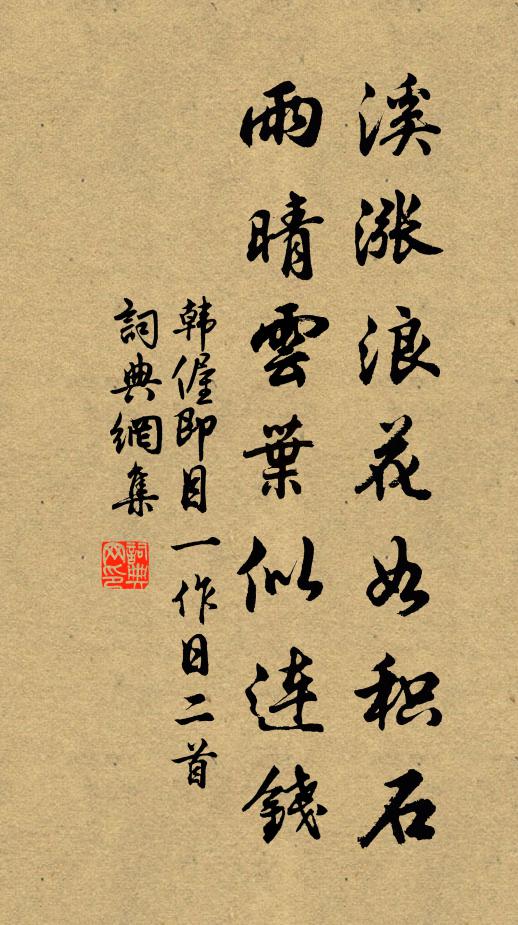 溪漲浪花如积石
雨晴雲葉似連錢
韩偓即目一作日二首
詞典網集
詞典網印